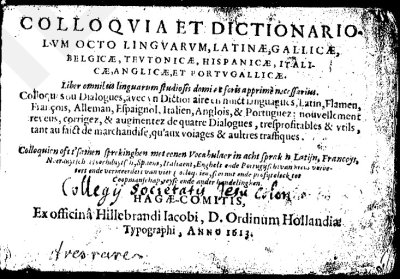 COLLOQVIA ET DICTIONARIO-
LVM OCTO LINGVARVM, LATINÆ, GALLICÆ,
BELGICÆ, TEVTONICÆ, HISPANICÆ, ITALI-
CÆ, ANGLICÆ, ET PORTVGALLICÆ.
Liber omnibus linguarum studiosis domi et foris apprimè necessarius.
Colloques ou Dialogues, avec vn Dictionaire en huict languages, Latin, Flamen,
François, Alleman, Espaignol, Italien, Anglois, & Portuguez: nouvellement
reveus, corrigez, & augmentez de quatre Dialogues, tresprofitables & vtils,
tant au faict de marchandise, qu'aux voiages & aultres traffiques.
Colloquien oft t'samen sprekinghen met eenen Vocabulaer in acht spraken Latijn, Francoys,
Spaens, Italiaens, Enghels ende Portugijsch
Collegij Societatis Jesu
HAGÆ-COMITIS,
Ex officinâ Hillebrandi Iacobi, D. Ordinum Hollandiæ
Typographi, ANNO 1613.